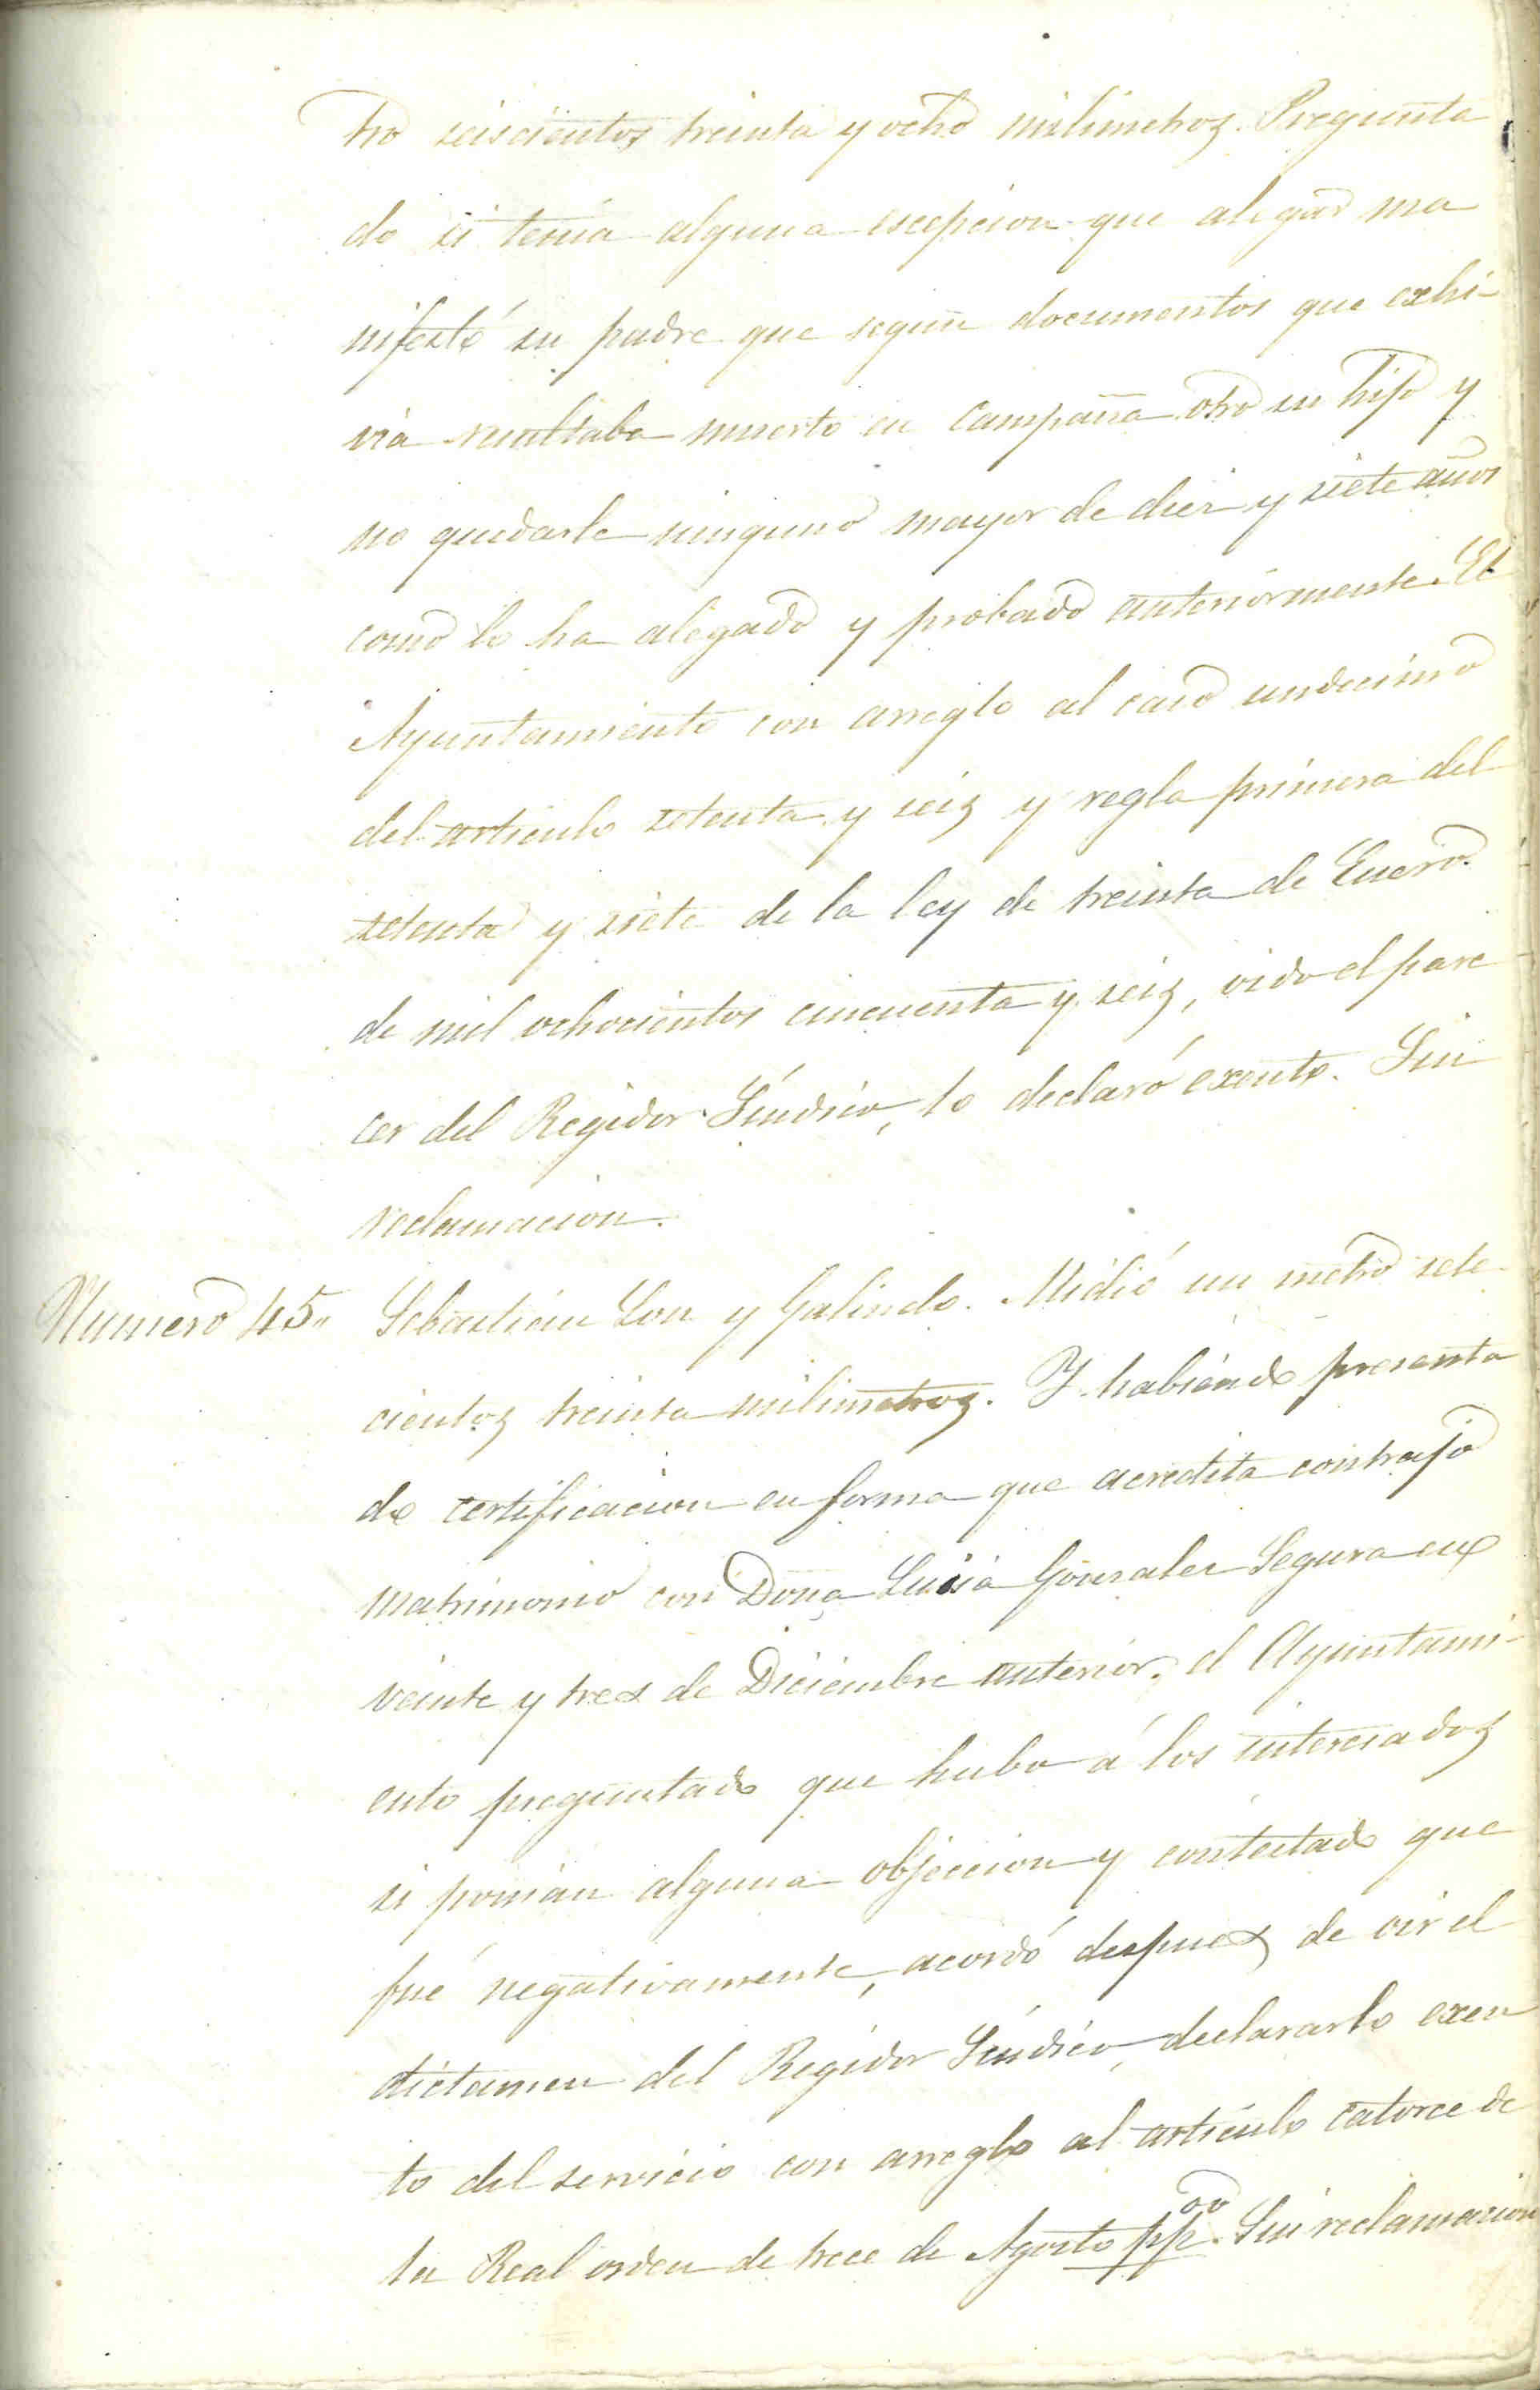 tro seiscientos treinta y ocho milimetros. Pregunta
do si tenia alguna escepcion que alegar ma
nifestó su padre que segun documentos que exhi-
via resultaba muerto en campaña otro su hijo y
no quedarle ninguno mayor de diez y siete años
como lo ha alegado y probado anteriormente. El
Ayuntamiento con arreglo al caso undecimo
del articulo setenta y seis y regla primera del
setenta y siete de la ley de treinta de Enero
de mil ochocientos cincuenta y seis, oido el pare
cer del Regidor Síndico, lo declaró exento. Sin
reclamacion.
Numero 45" Sebastián Son y Galindo. Midió un metro sete
cientos treinta milimetros. Y habiendo presenta
do certificacion en forma que acredita contrajo
matrimonio con Doña Lucia Gonzalez Segura en
veinte y tres de Diciembre anterior, el Ayuntami-
ento preguntado que hubo á los interesados
si ponian alguna objeccion y contestado que
fué negativamente, acordó despues de oir el
dictamen del Regidor Síndico, declararlo exen
to del servicio con arreglo al articulo catorce de
la Real orden de trece de Agosto pp.oo Sin reclamacion